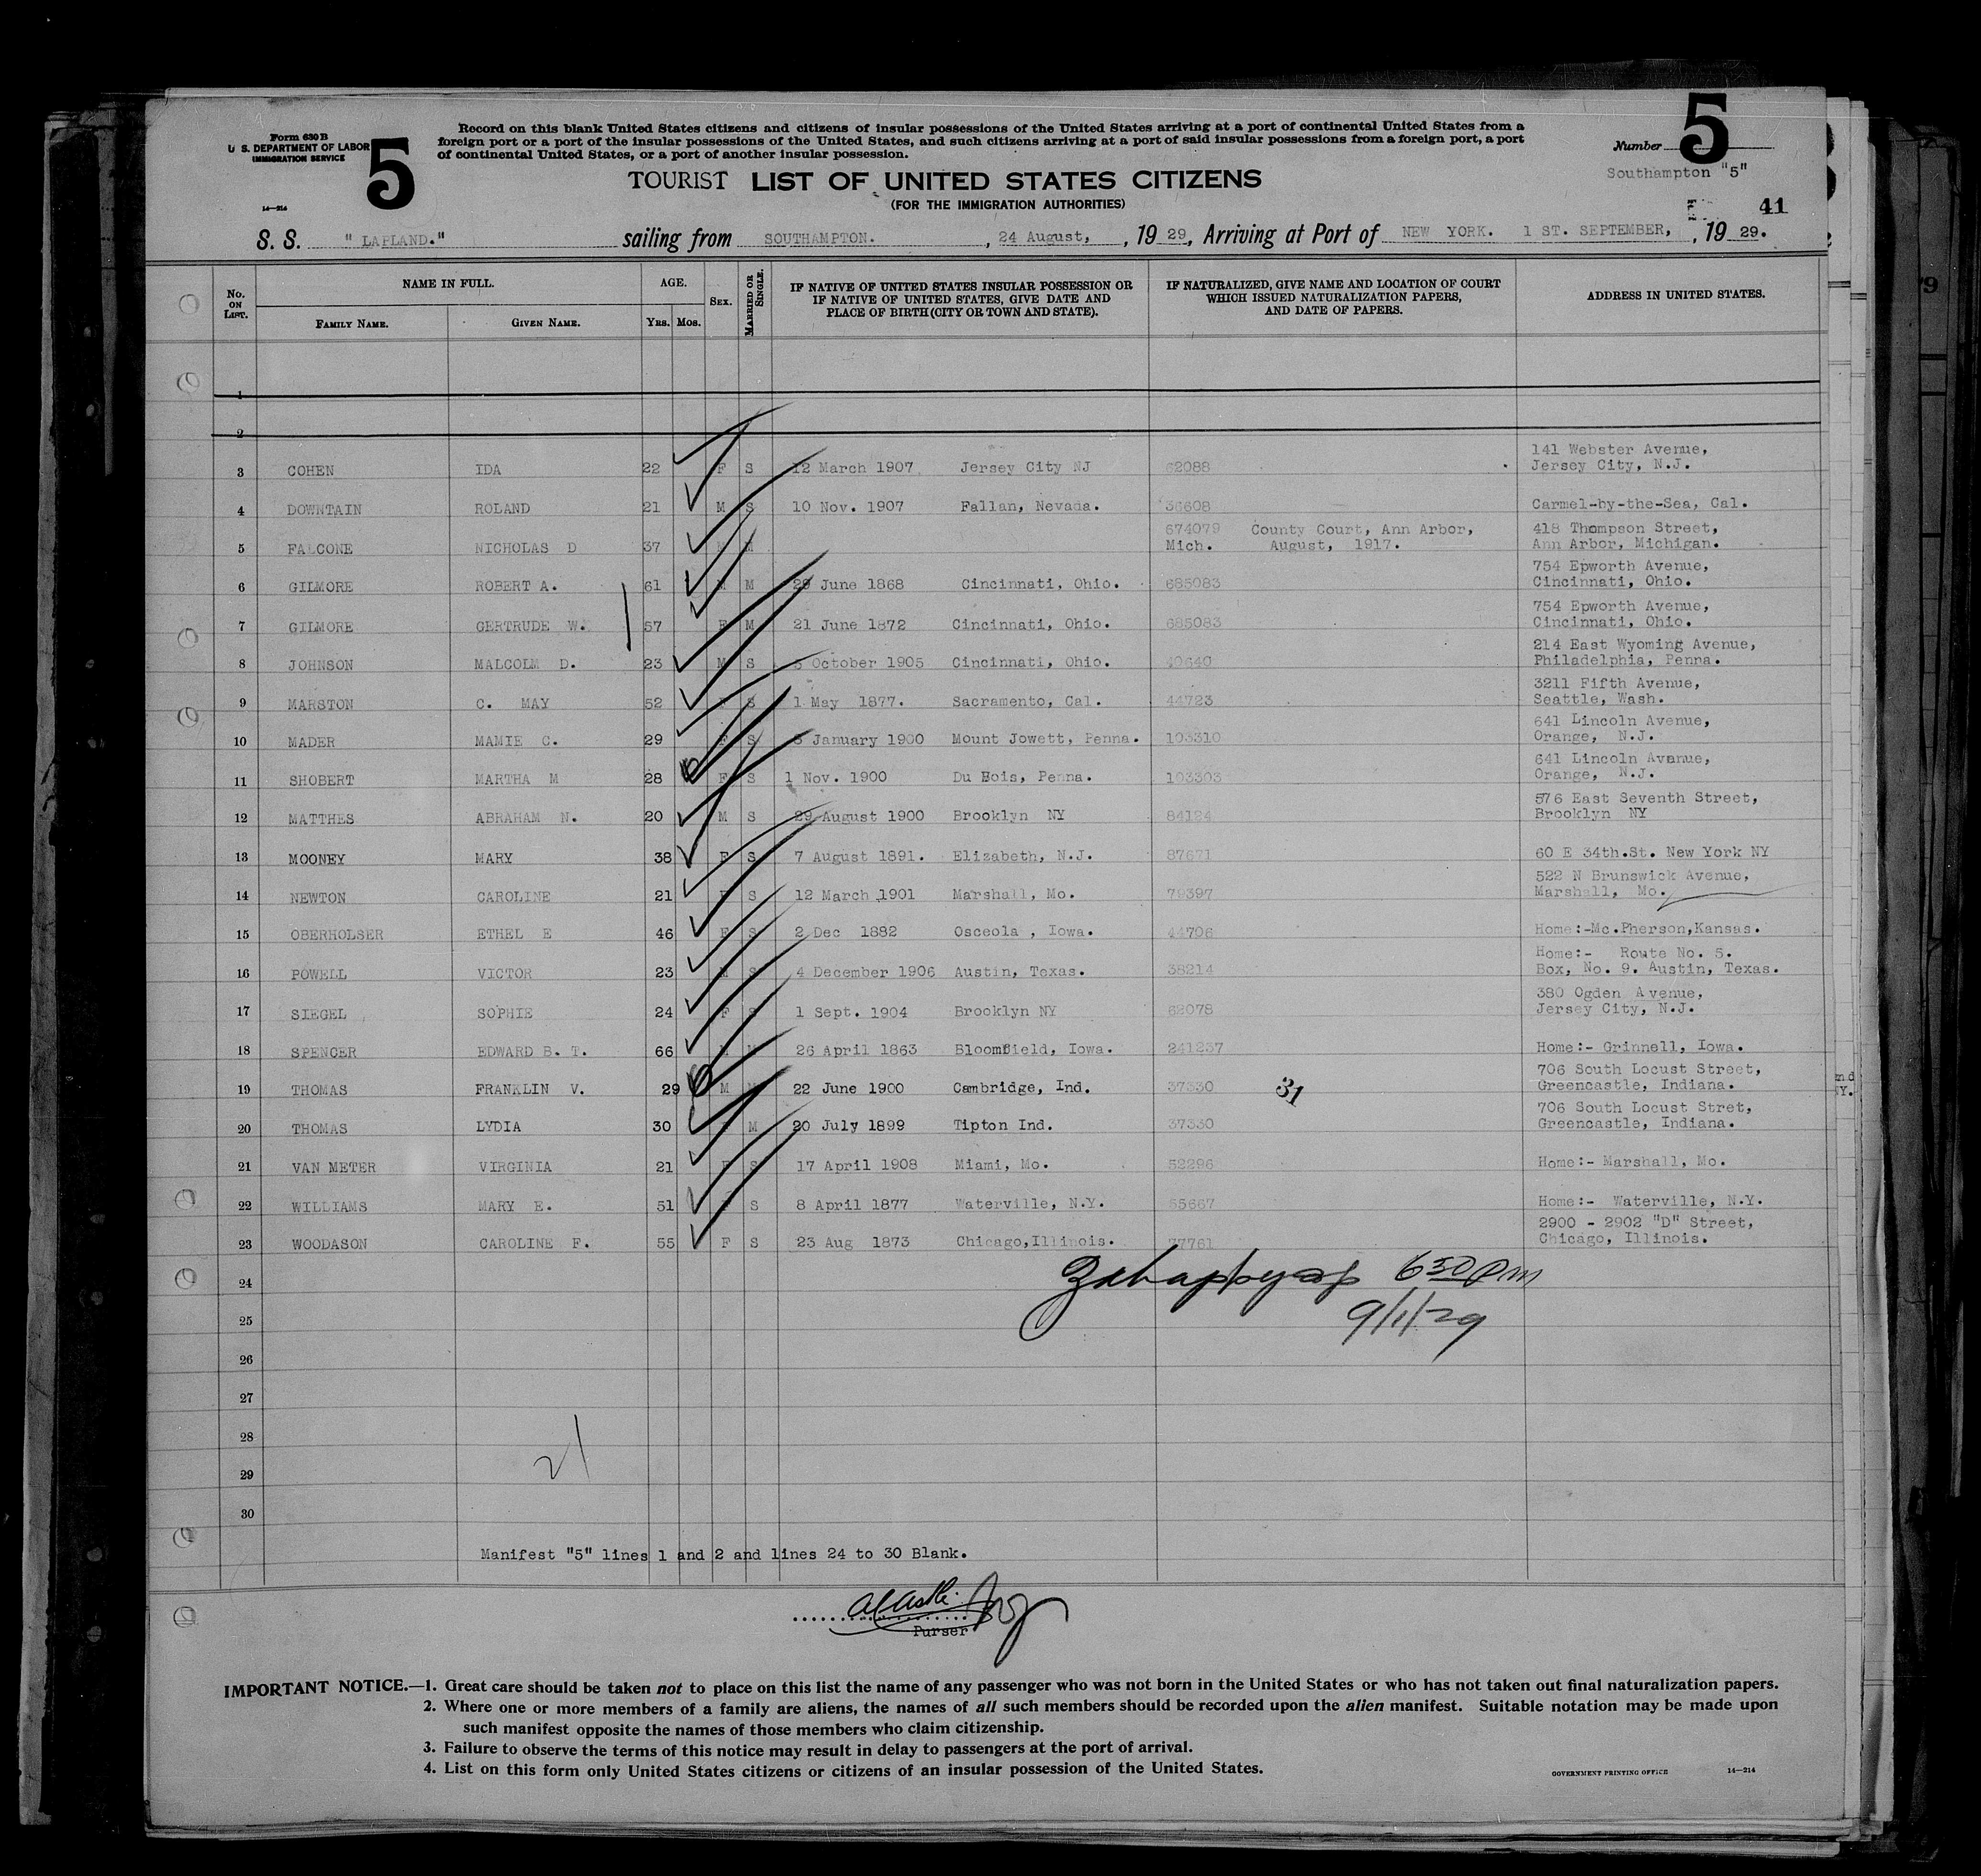 Form 630 B
U. S. DEPARTMENT OF LABOR
IMMIGRATION SERVICE
14—214
5
Record on this blank United States citizens and citizens of insular possessions of the United States arriving at a port of continental United States from a
foreign port or a port of the insular possessions of the United States, and such citizens arriving at a port of said insular possessions from a foreign port, a port
of continental United States, or a port of another insular possession.
5
Number
Southampton "5"
TOURIST LIST OF UNITED STATES CITIZENS
(FOR THE IMMIGRATION AUTHORITIES)
41
S. S. " LAPLAND." sailing from SOUTHAMPTON. , 24 August, , 19 29, Arriving at Port of NEW YORK. 1 ST. SEPTEMBER, , 19 29.
No. ON LIST. NAME IN FULL. FAMILY NAME. GIVEN NAME. AGE. YRS. MOS. SEX. MARRIED OR SINGLE. IF NATIVE OF UNITED STATES INSULAR POSSESSION OR IF NATIVE OF UNITED STATES, GIVE DATE AND PLACE OF BIRTH (CITY OR TOWN AND STATE). IF NATURALIZED, GIVE NAME AND LOCATION OF COURT WHICH ISSUED NATURALIZATION PAPERS, AND DATE OF PAPERS. ADDRESS IN UNITED STATES.
1
2
3 COHEN IDA 22 F S 12 March 1907 Jersey City NJ 62088 141 Webster Avenue, Jersey City, N.J.
4 DOWNTAIN ROLAND 21 M S 10 Nov. 1907 Fallan, Nevada. 36608 Carmel-by-the-Sea, Cal.
5 FALCONE NICHOLAS D 37 M M 674079 County Court, Ann Arbor, Mich. August, 1917. 418 Thompson Street, Ann Arbor, Michigan.
6 GILMORE ROBERT A. 61 M M 29 June 1868 Cincinnati, Ohio. 685083 754 Epworth Avenue, Cincinnati, Ohio.
7 GILMORE GERTRUDE W. 57 F M 21 June 1872 Cincinnati, Ohio. 685083 754 Epworth Avenue, Cincinnati, Ohio.
8 JOHNSON MALCOLM D. 23 M S October 1905 Cincinnati, Ohio. 40640 214 East Wyoming Avenue, Philadelphia, Penna.
9 MARSTON C. MAY 52 F S 1 May 1877. Sacramento, Cal. 44723 3211 Fifth Avenue, Seattle, Wash.
10 MADER MAMIE C. 29 F S January 1900 Mount Jowett, Penna. 103310 641 Lincoln Avenue, Orange, N.J.
11 SHOBERT MARTHA M 28 F S 1 Nov. 1900 Du Bois, Penna. 103303 641 Lincoln Avenue, Orange, N.J.
12 MATTHES ABRAHAM N. 20 M S 29 August 1900 Brooklyn NY 84124 576 East Seventh Street, Brooklyn NY
13 MOONEY MARY 38 F S 7 August 1891. Elizabeth, N.J. 87671 60 E 34th.St. New York NY
14 NEWTON CAROLINE 21 F S 12 March 1901 Marshall, Mo. 79397 522 N Brunswick Avenue, Marshall, Mo.
15 OBERHOLSER ETHEL E 46 F S 2 Dec 1882 Osceola , Iowa. 44706 Home:-Mc.Pherson,Kansas.
16 POWELL VICTOR 23 M S 4 December 1906 Austin, Texas. 38214 Home:- Route No. 5. Box, No. 9. Austin, Texas.
17 SIEGEL SOPHIE 24 F S 1 Sept. 1904 Brooklyn NY 62078 380 Ogden Avenue, Jersey City, N.J.
18 SPENCER EDWARD B. T. 66 M M 26 April 1863 Bloomfield, Iowa. 241237 Home:- Grinnell, Iowa.
19 THOMAS FRANKLIN V. 29 M M 22 June 1900 Cambridge, Ind. 37330 31 706 South Locust Street, Greencastle, Indiana.
20 THOMAS LYDIA 30 F M 20 July 1899 Tipton Ind. 37330 706 South Locust Stret, Greencastle, Indiana.
21 VAN METER VIRGINIA 21 F S 17 April 1908 Miami, Mo. 52296 Home:- Marshall, Mo.
22 WILLIAMS MARY E. 51 F S 8 April 1877 Waterville, N.Y. 55667 Home:- Waterville, N.Y.
23 WOODASON CAROLINE F. 55 F S 23 Aug 1873 Chicago,Illinois. 77761 2900 - 2902 "D" Street, Chicago, Illinois.
24
6 30 PM
25
9/1/29
26
27
28
21
29
30
Manifest "5" lines 1 and 2 and lines 24 to 30 Blank.
Purser
IMPORTANT NOTICE.—1. Great care should be taken not to place on this list the name of any passenger who was not born in the United States or who has not taken out final naturalization papers.
2. Where one or more members of a family are aliens, the names of all such members should be recorded upon the alien manifest. Suitable notation may be made upon
such manifest opposite the names of those members who claim citizenship.
3. Failure to observe the terms of this notice may result in delay to passengers at the port of arrival.
4. List on this form only United States citizens or citizens of an insular possession of the United States.
GOVERNMENT PRINTING OFFICE 14—214